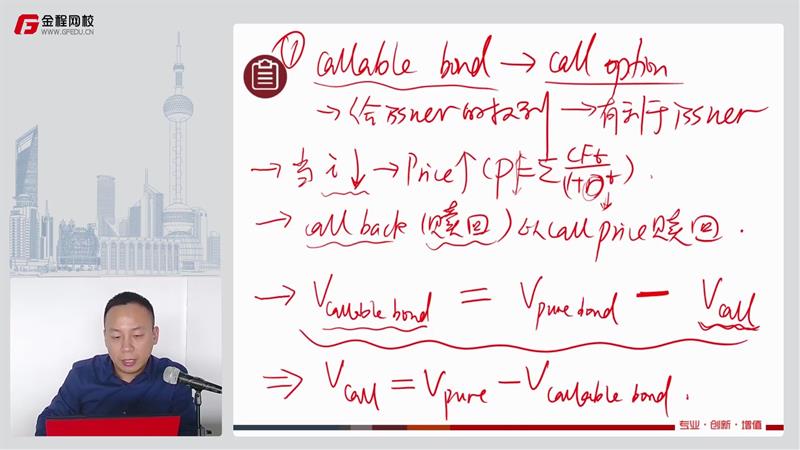 金程网校
WWW.GFEDU.CN
(1) callable bond → call option
→ 给issuer的权利 → 有利于issuer
→ 当 i ↓ → Price ↑ (P↑ = Σ CFt/(1+i)^t).
→ call back (赎回) 以 call price 赎回.
→ V callable bond = V pure bond - V call
⇒ V call = V pure - V callable bond.
专业·创新·增值